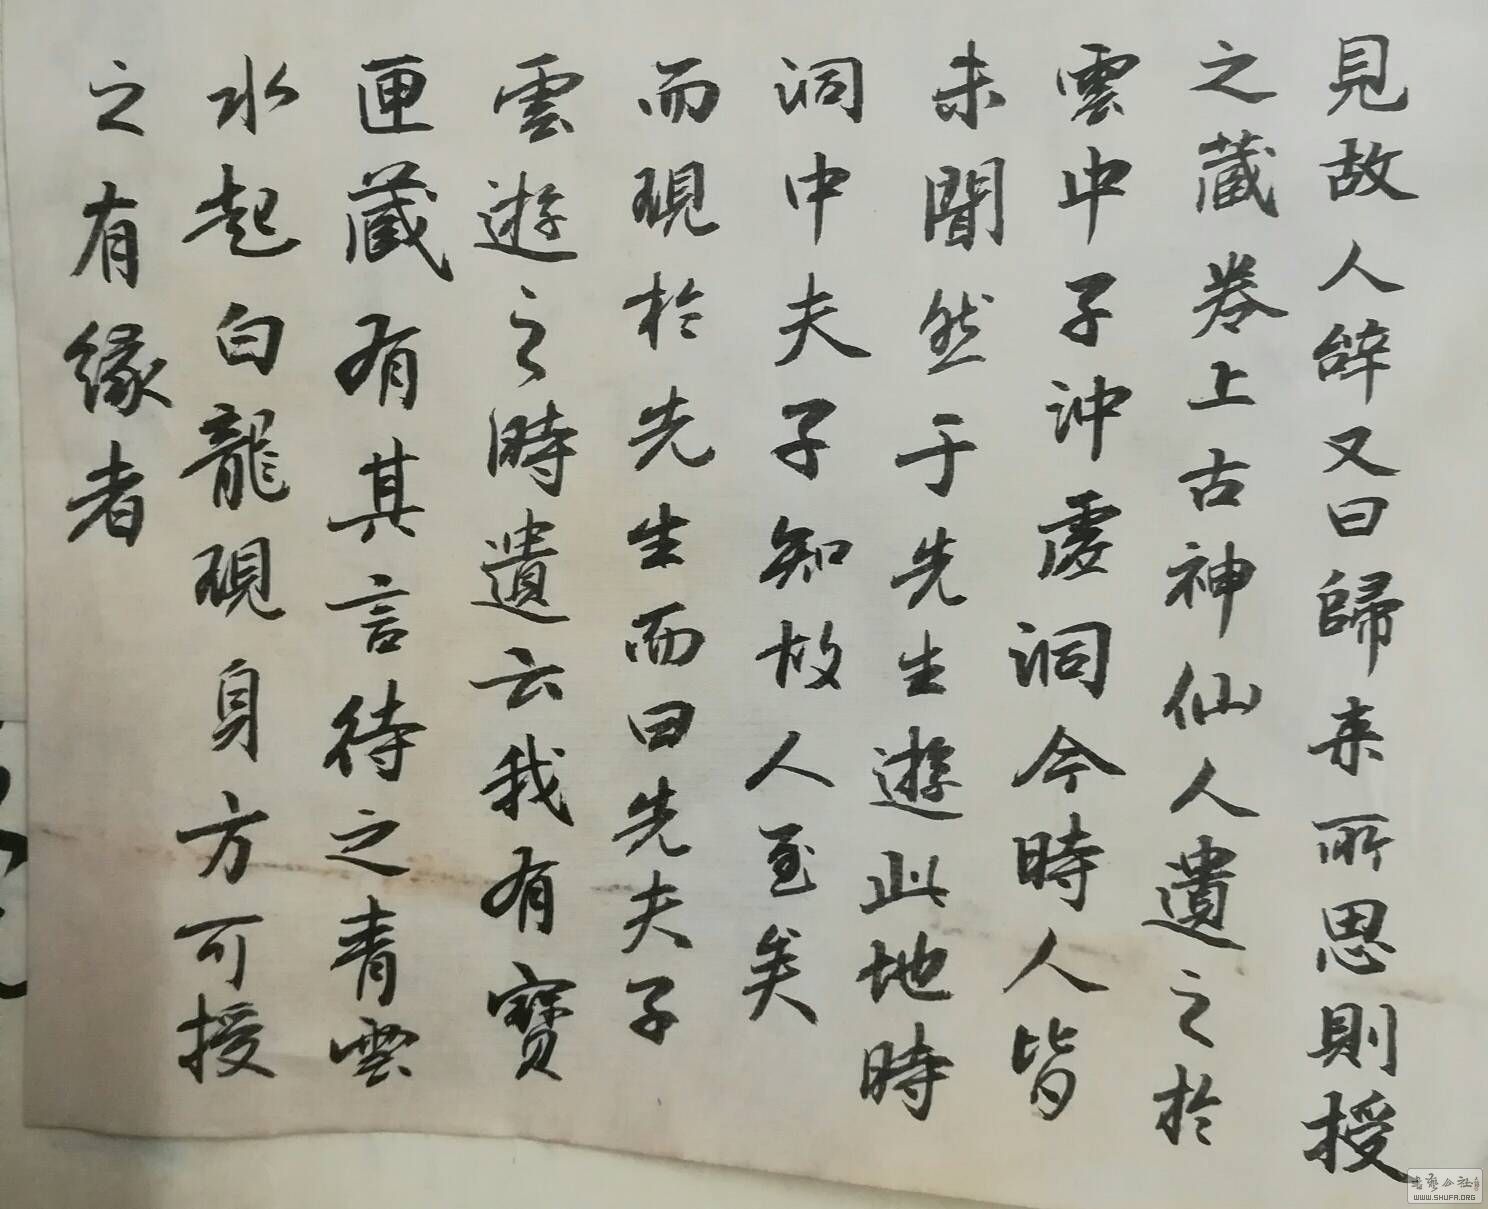 見故人辞又曰歸来所思則授
之蔵卷上古神仙人遺之於
雲中子沖虛洞今時人皆
未聞然于先生遊此地時
洞中夫子知故人至矣
而現於先生而曰先夫子
雲遊之時遺云我有寶
匣蔵有其言待之青雲
水起白龍現身方可授
之有緣者
書藝公社
WWW.SHUFA.ORG